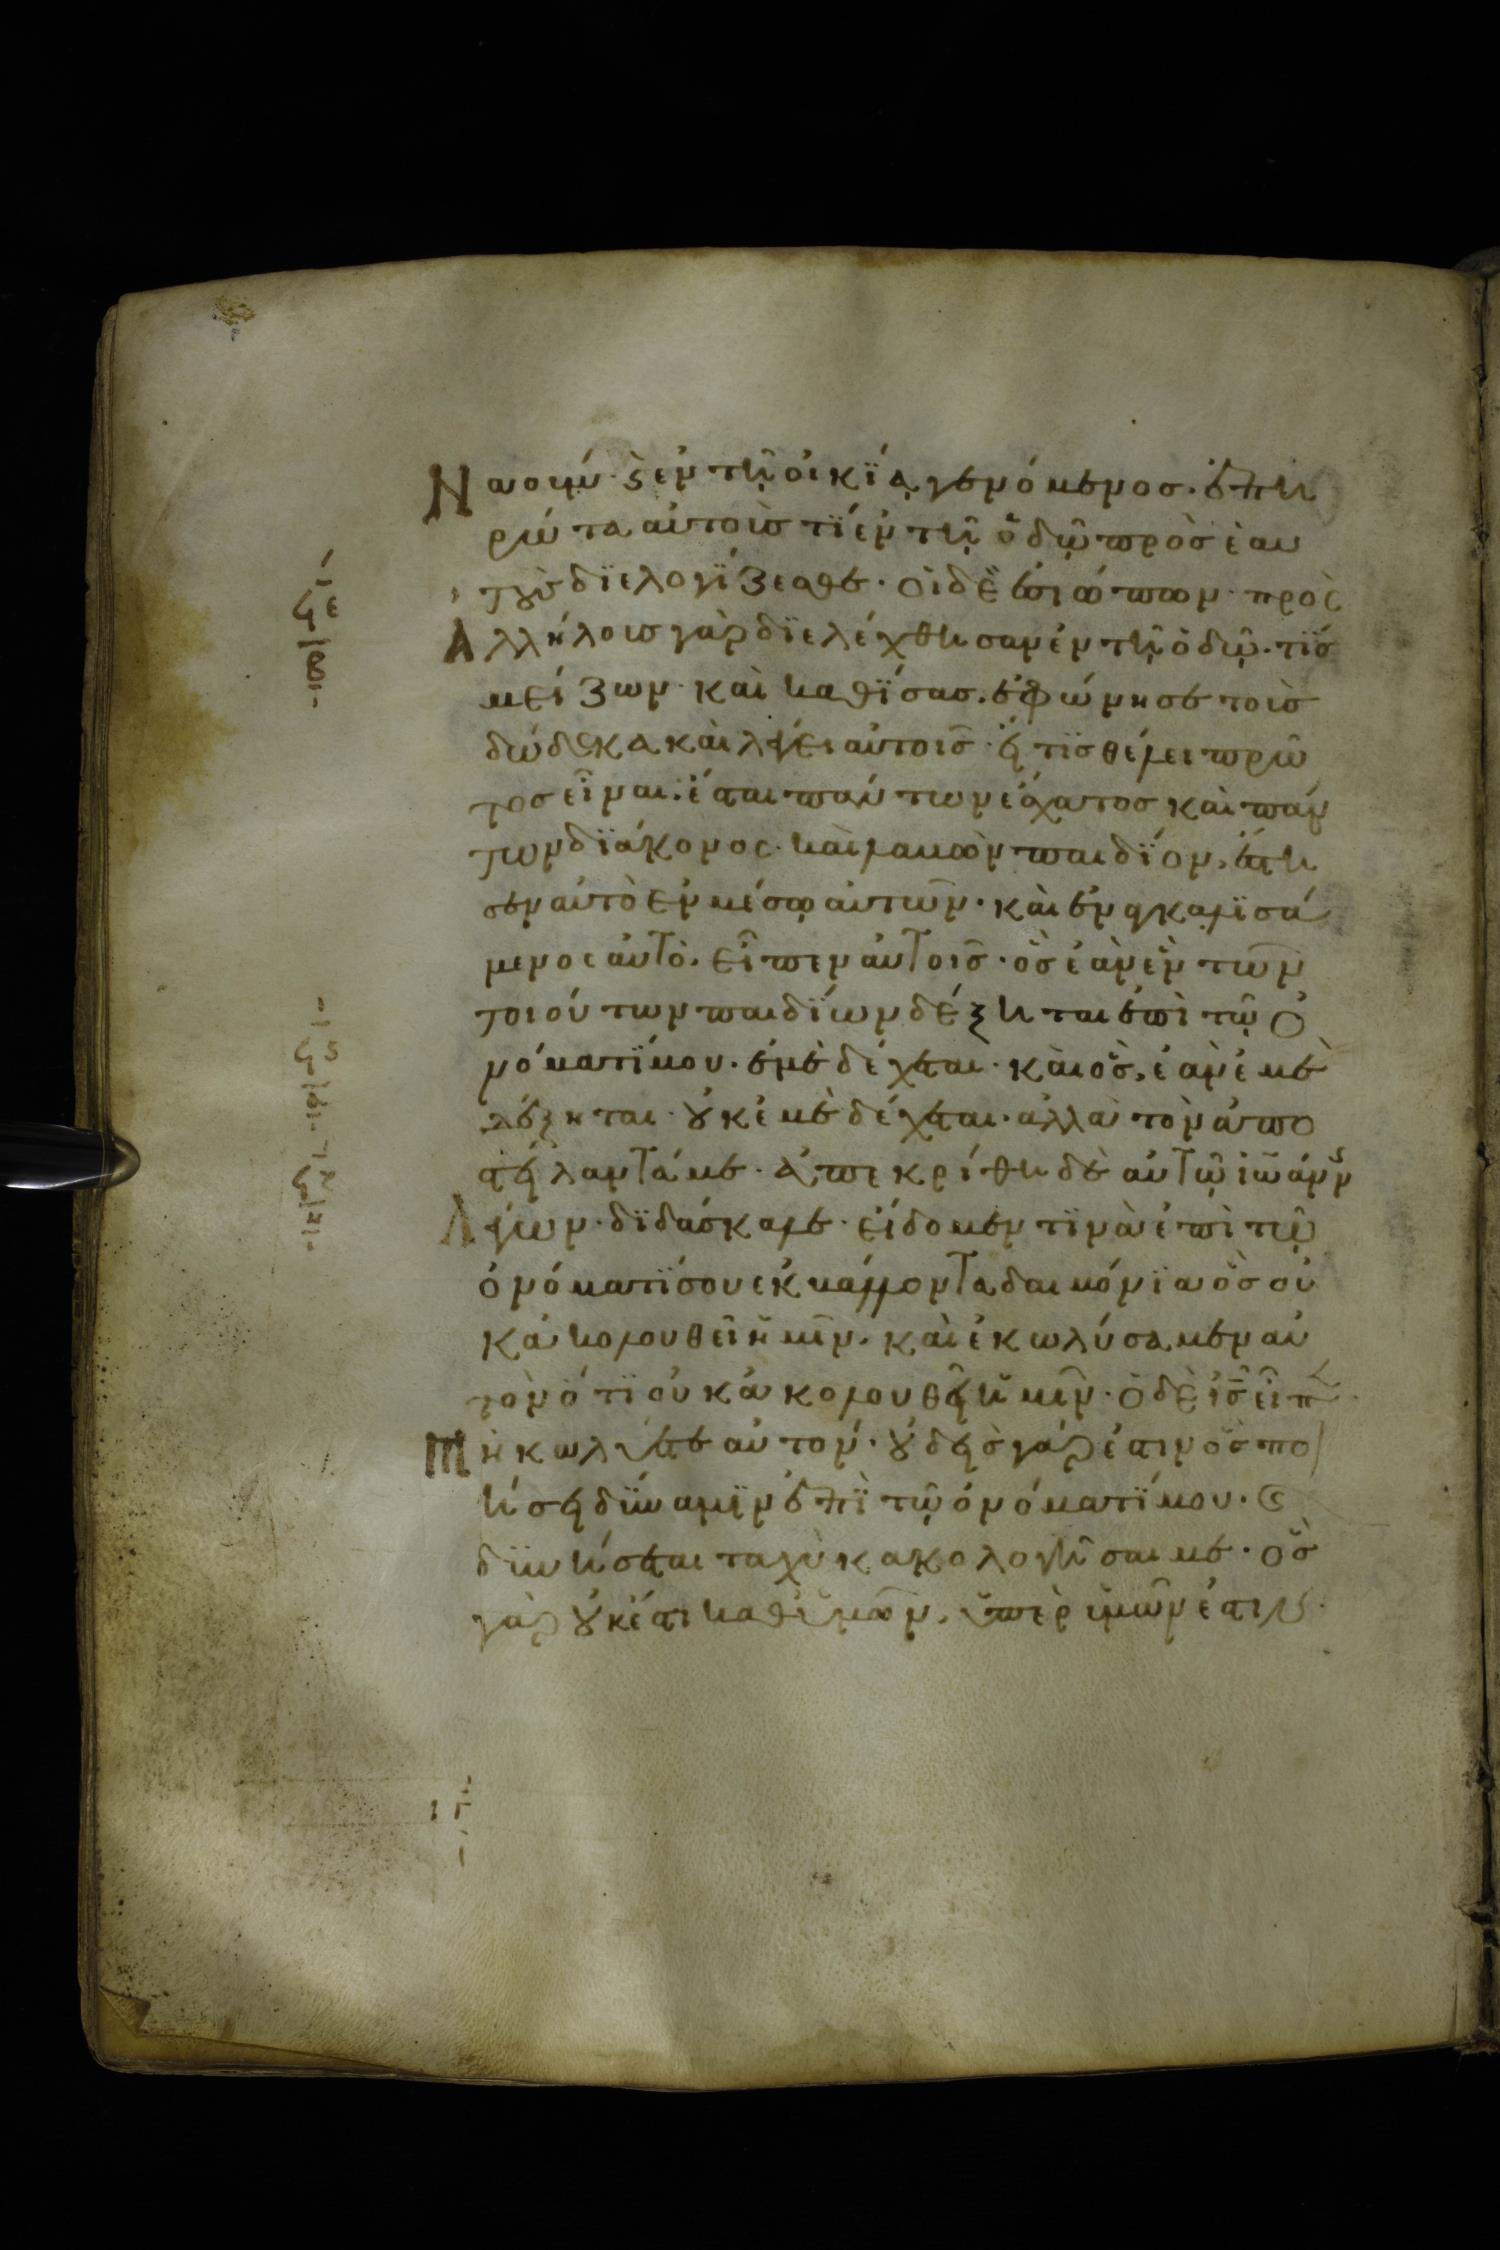 Ναουμ· ϗ ἐν τῆ οἰκία γενόμενος· ἐπη
ρώτα αὐτοὺς τί ἐν τῆ ὁδῷ πρὸς ἑαυ
τȣ̀ς διελογίζεσθε· οἱ δὲ ἐσιώπων· πρὸς
ἀλλήλοις γὰρ διελέχθησαν ἐν τῆ ὁδῷ· τίς
μείζων· καὶ καθίσας· ἐφώνησε τοὺς
δώδεκα καὶ λέγει αὐτοῖς· εἴ τις θέλει πρῶ
τος εἶναι· ἔσται πάντων ἔσχατος καὶ πάν
των διάκονος· καὶ λαβὼν παιδίον, ἔστη
σεν αὐτὸ ἐν μέσω αὐτῶν· καὶ ἐναγκαλισά
μενος αὐτὸ· εἶπεν αὐτοῖς· ὃς ἐὰν ἓν τῶν
τοιούτων παιδίων δέξηται ἐπὶ τῷ ὀ
νόματί μου· ἐμὲ δέχεται· καὶ ὃς, ἐὰν ἐμὲ
δέξηται· ȣ̓κ ἐμὲ δέχεται· ἀλλὰ τὸν ἀπο
στείλαντά με· ἀπεκρίθη δὲ αὐτῷ ἰωάνν
λέγων· διδάσκαλε· εἴδομεν τινὰ ἐπὶ τῷ
ὀνόματί σου ἐκβάλλοντα δαιμόνια ὃς οὐ
κ ἀκολουθεῖ ἡμῖν· καὶ ἐκωλύσαμεν αὐ
τὸν ὅτι οὐκ ἀκολουθεῖ ἡμῖν· ὁ δὲ ις εἶπ
μὴ κωλύετε αὐτόν· ȣ̓δεὶς γάρ ἐστιν ὃς πο
ιήσει δύναμιν ἐπὶ τῷ ὀνόματί μου· ϗ
δυνήσεται ταχὺ κακολογῆσαι με· ὃς
γὰρ ȣ̓κ ἔστι καθ' ὑμῶν, ὑπὲρ ὑμῶν ἐστιν·